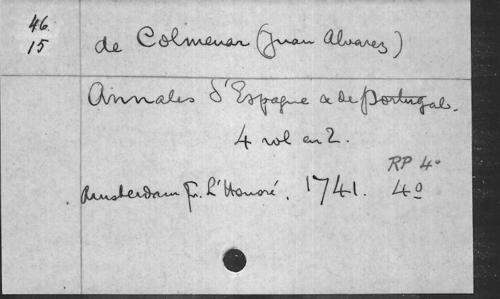 46
15
de Colmenar (Juan Alvarez)
Annales d'Espagne & de Portugal.
4 vol en 2.
RP 4°
Amsterdam Fr. L'Honoré. 1741. 4°